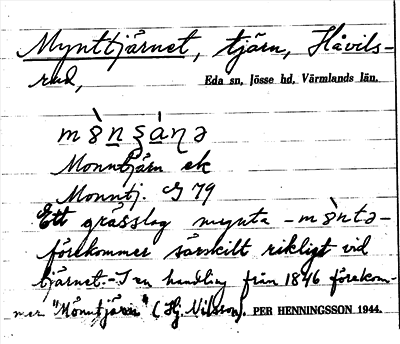 Mynttjärnet, tjärn, Håvils-
rud, Eda sn, Jösse hd, Värmlands län.
Monntjärn ek
Monntj. G 79
Ett grässlag mynta -
förekommer särskilt rikligt vid
tjärnet. - I en handling från 1846 förekom-
mer "Mönntjärn" (Hj. Nilsson). PER HENNINGSSON 1944.